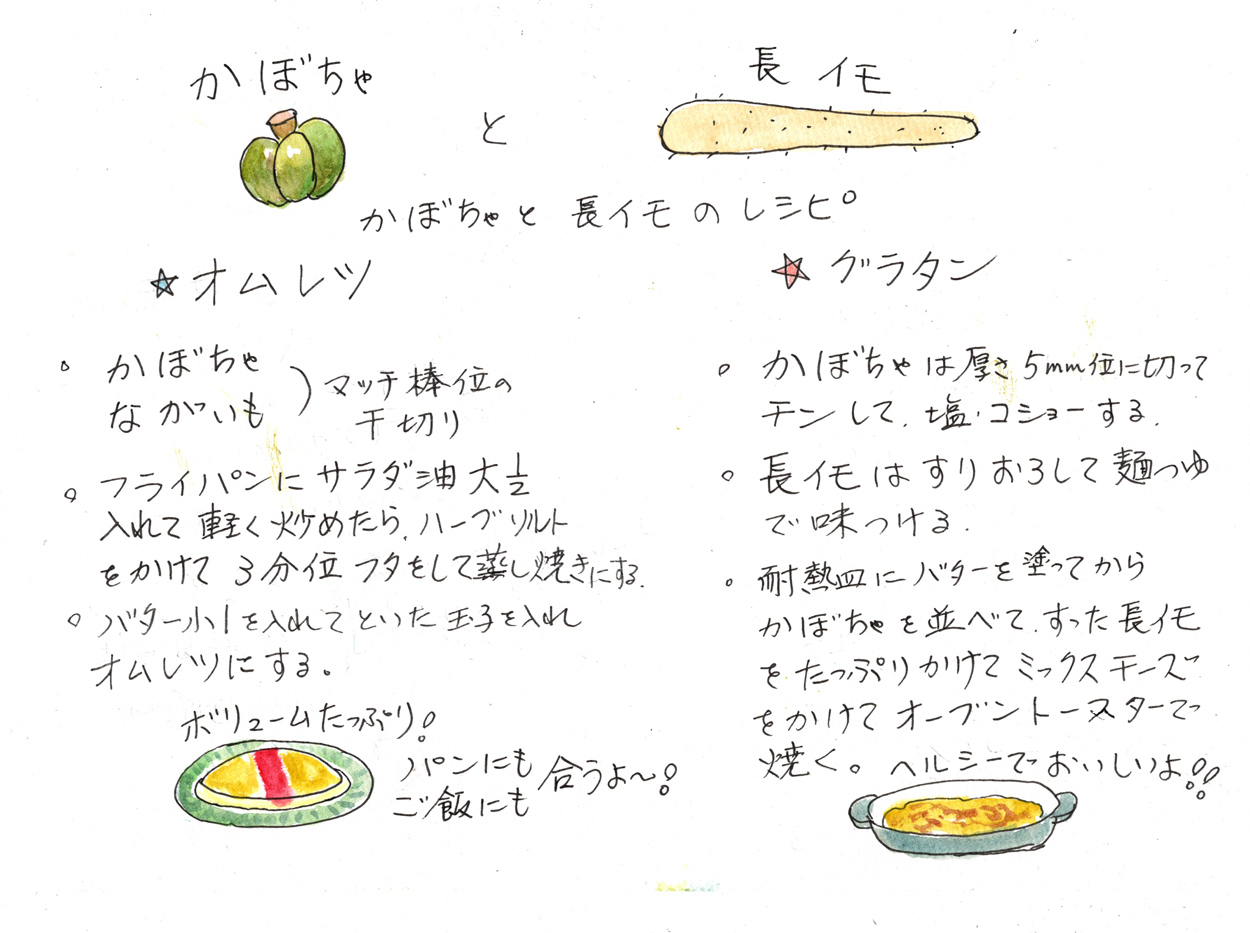 かぼちゃ
と
長イモ
かぼちゃと長イモのレシピ
☆オムレツ
。かぼちゃ
ながいも
)マッチ棒位の
千切り
。フライパンにサラダ油大1/2
入れて軽く炒めたら、ハーブソルト
をかけて3分位フタをして蒸し焼きにする.
。バター小1を入れてといた玉子を入れ
オムレツにする。
ボリュームたっぷり!
パンにも
ご飯にも
合うよ〜!
☆グラタン
。かぼちゃは厚さ5mm位に切って
チンして、塩・コショーする.
。長イモはすりおろして麺つゆ
で味つける.
。耐熱皿にバターを塗ってから
かぼちゃを並べて、すった長イモ
をたっぷりかけてミックスチーズ
をかけてオーブントースターで
焼く。
ヘルシーでおいしいよ!!